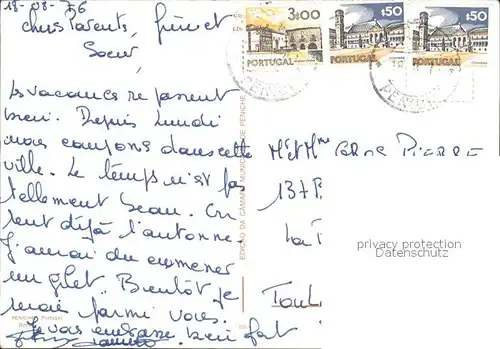 18-08-76
chers Parents, frère et
Soeur,
Les vacances se passent
bien. Depuis Lundi
nous campons dans cette
ville. Le temps n'est pas
tellement beau. On
sent déjà l'automne.
J'aurai du emmener
un gilet. Bientôt je
serai parmi vous.
Je vous embrasse bien fort
3$00
PORTUGAL
$50
PORTUGAL
$50
PORTUGAL
EDIÇÃO DA CÂMARA MUNICIPAL DE PENICHE
PENICHE
M et Mme PIERRE
137
La
Toul
privacy protection
Datenschutz